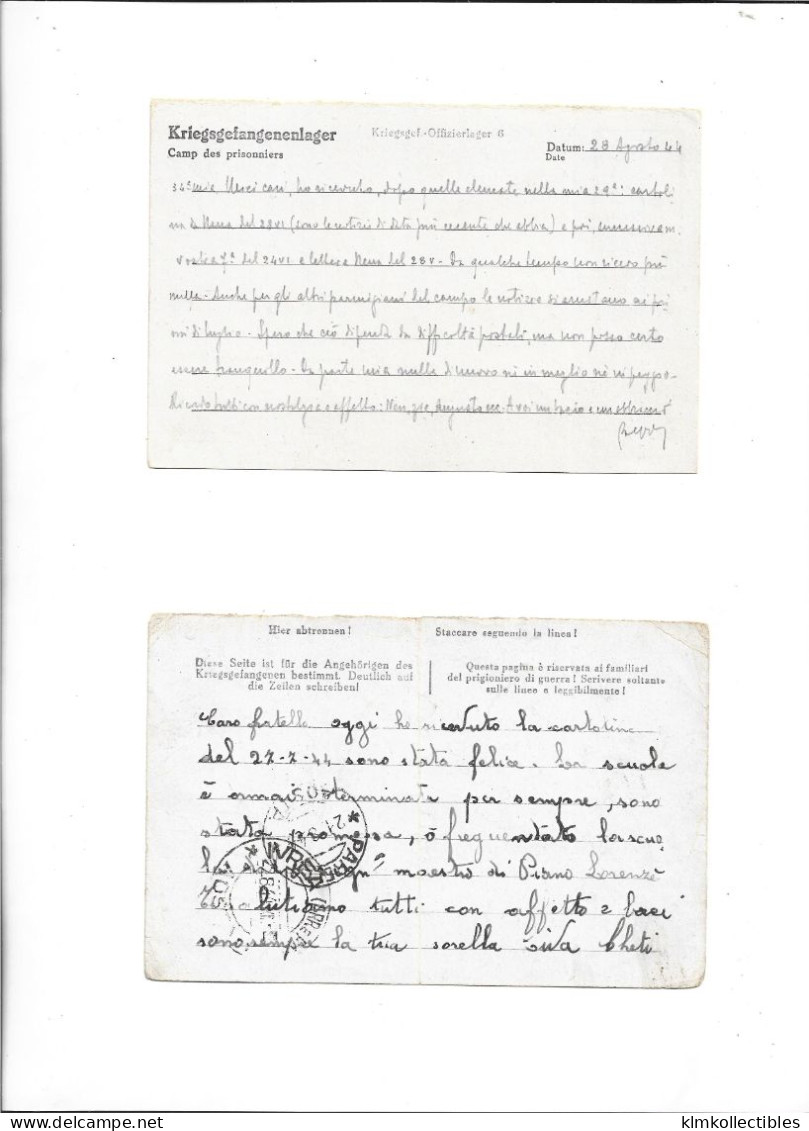 Kriegsgefangenenlager
Kriegsgef.-Offizierlager 6
Datum: 28 Agosto 44
Camp des prisonniers
Date
34ª mia Miei cari, ho ricevuto, dopo quelle elencate nella mia 29ª: cartoli
na di Nena del 28VI (sono le notizie di data più recente che abbia) e poi,
vostra 7ª del 24VI e lettera Nena del 28V - Da qualche tempo non ricevo più
nulla - Anche per gli altri parmigiani del campo le notizie si arrestano ai pri
mi di luglio - Spero che ciò dipenda da difficoltà postali, ma non posso certo
essere tranquillo - Da parte mia nulla di nuovo nè in meglio nè in peggio -
Ricordo tutti con nostalgia e affetto: Augusta ecc. A voi un bacio e un abbraccio
Hier abtrennen!
Staccare seguendo la linea!
Diese Seite ist für die Angehörigen des
Kriegsgefangenen bestimmt. Deutlich auf
die Zeilen schreiben!
Questa pagina è riservata ai familiari
del prigioniero di guerra! Scrivere soltanto
sulle linee e leggibilmente!
Caro fratello oggi ho ricevuto la cartolina
del 27-7-44 sono stata felice. La scuola
è ormai terminata per sempre, sono
stata promossa, ò frequentato la scuo
la maestro di Piano Lorenzo
salutiamo tutti con affetto e baci
sono sempre la tua sorella
PARMA
klmkollectibles.com